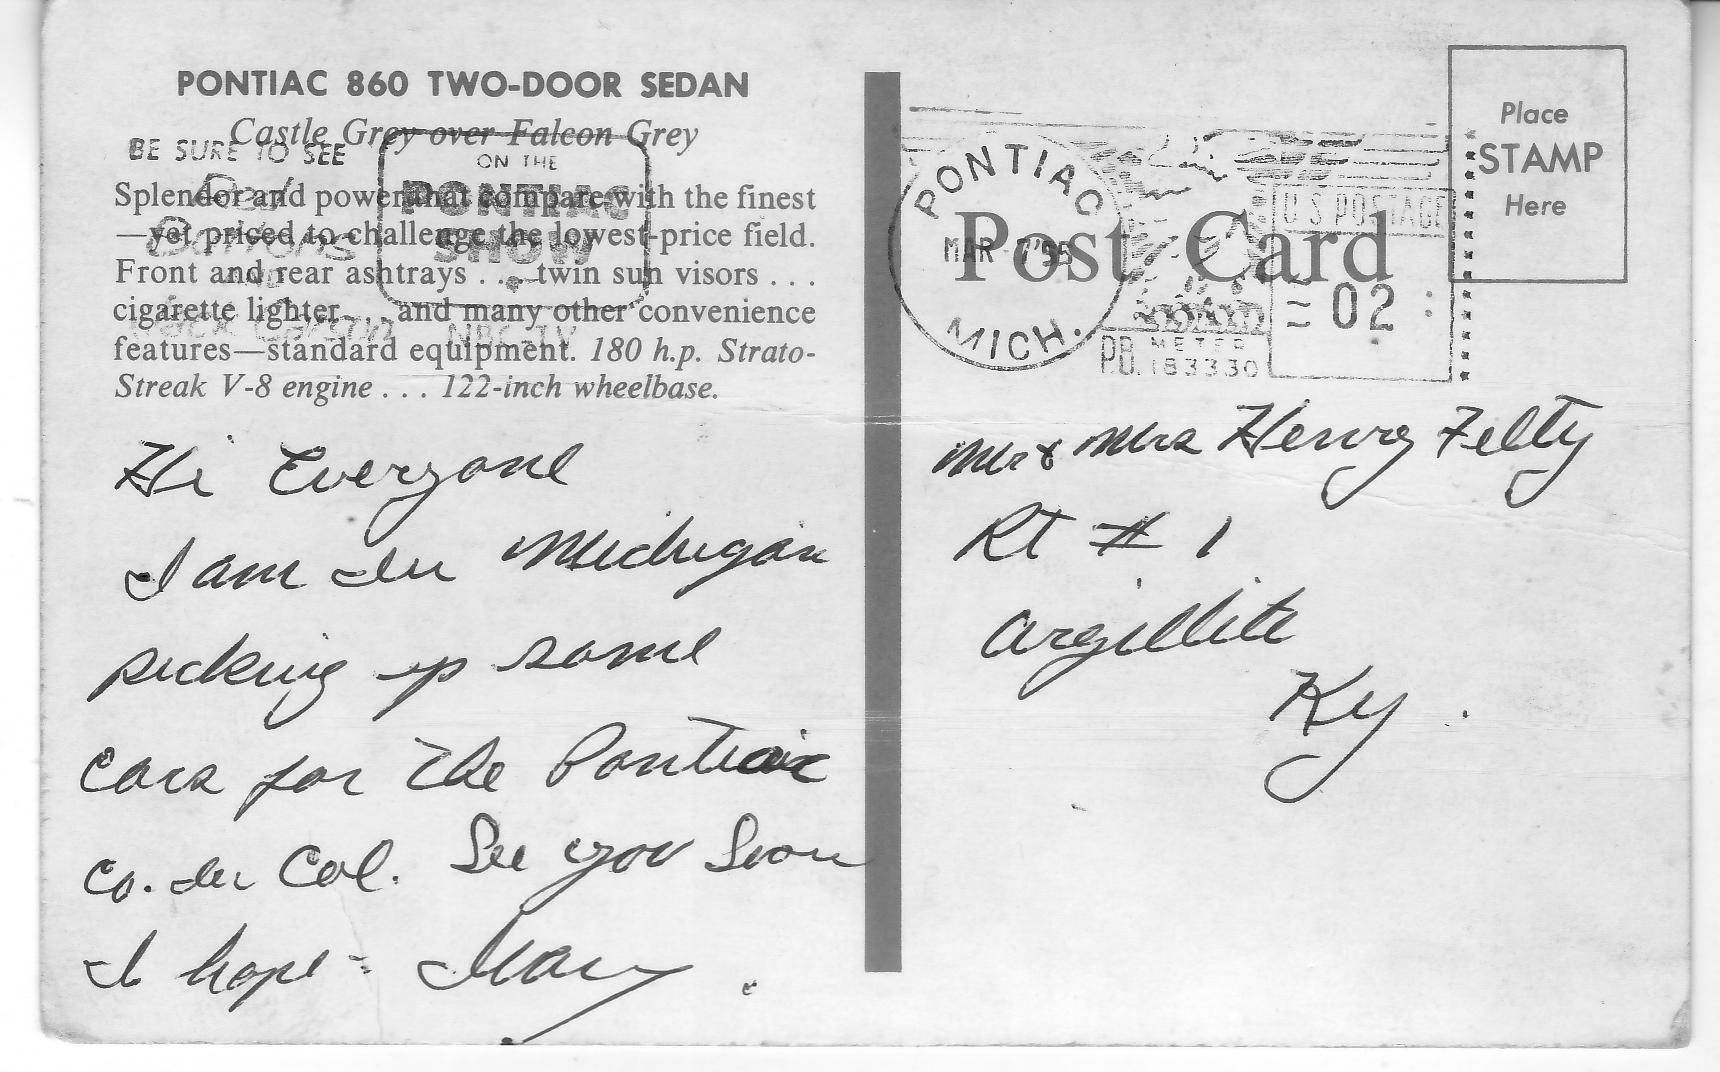 PONTIAC 860 TWO-DOOR SEDAN
Castle Grey over Falcon Grey
Splendor and power that compare with the finest
—yet priced to challenge the lowest-price field.
Front and rear ashtrays . . . twin sun visors . . .
cigarette lighter . . . and many other convenience
features—standard equipment. 180 h.p. Strato-
Streak V-8 engine . . . 122-inch wheelbase.
BE SURE TO SEE
Red
Buttons
Jack Carson
ON THE
PONTIAC
SHOW
NBC-TV
Hi Everyone
I am in Michigan
picking up some
cars for the Pontiac
Co. in Col. See you Soon
I hope -
Post Card
Place
STAMP
Here
PONTIAC
MAR 7 '55
MICH.
U S POSTAGE
= 02
P.B. METER
183330
Mr & Mrs Henry Felty
Rt # 1
Argillite
Ky.